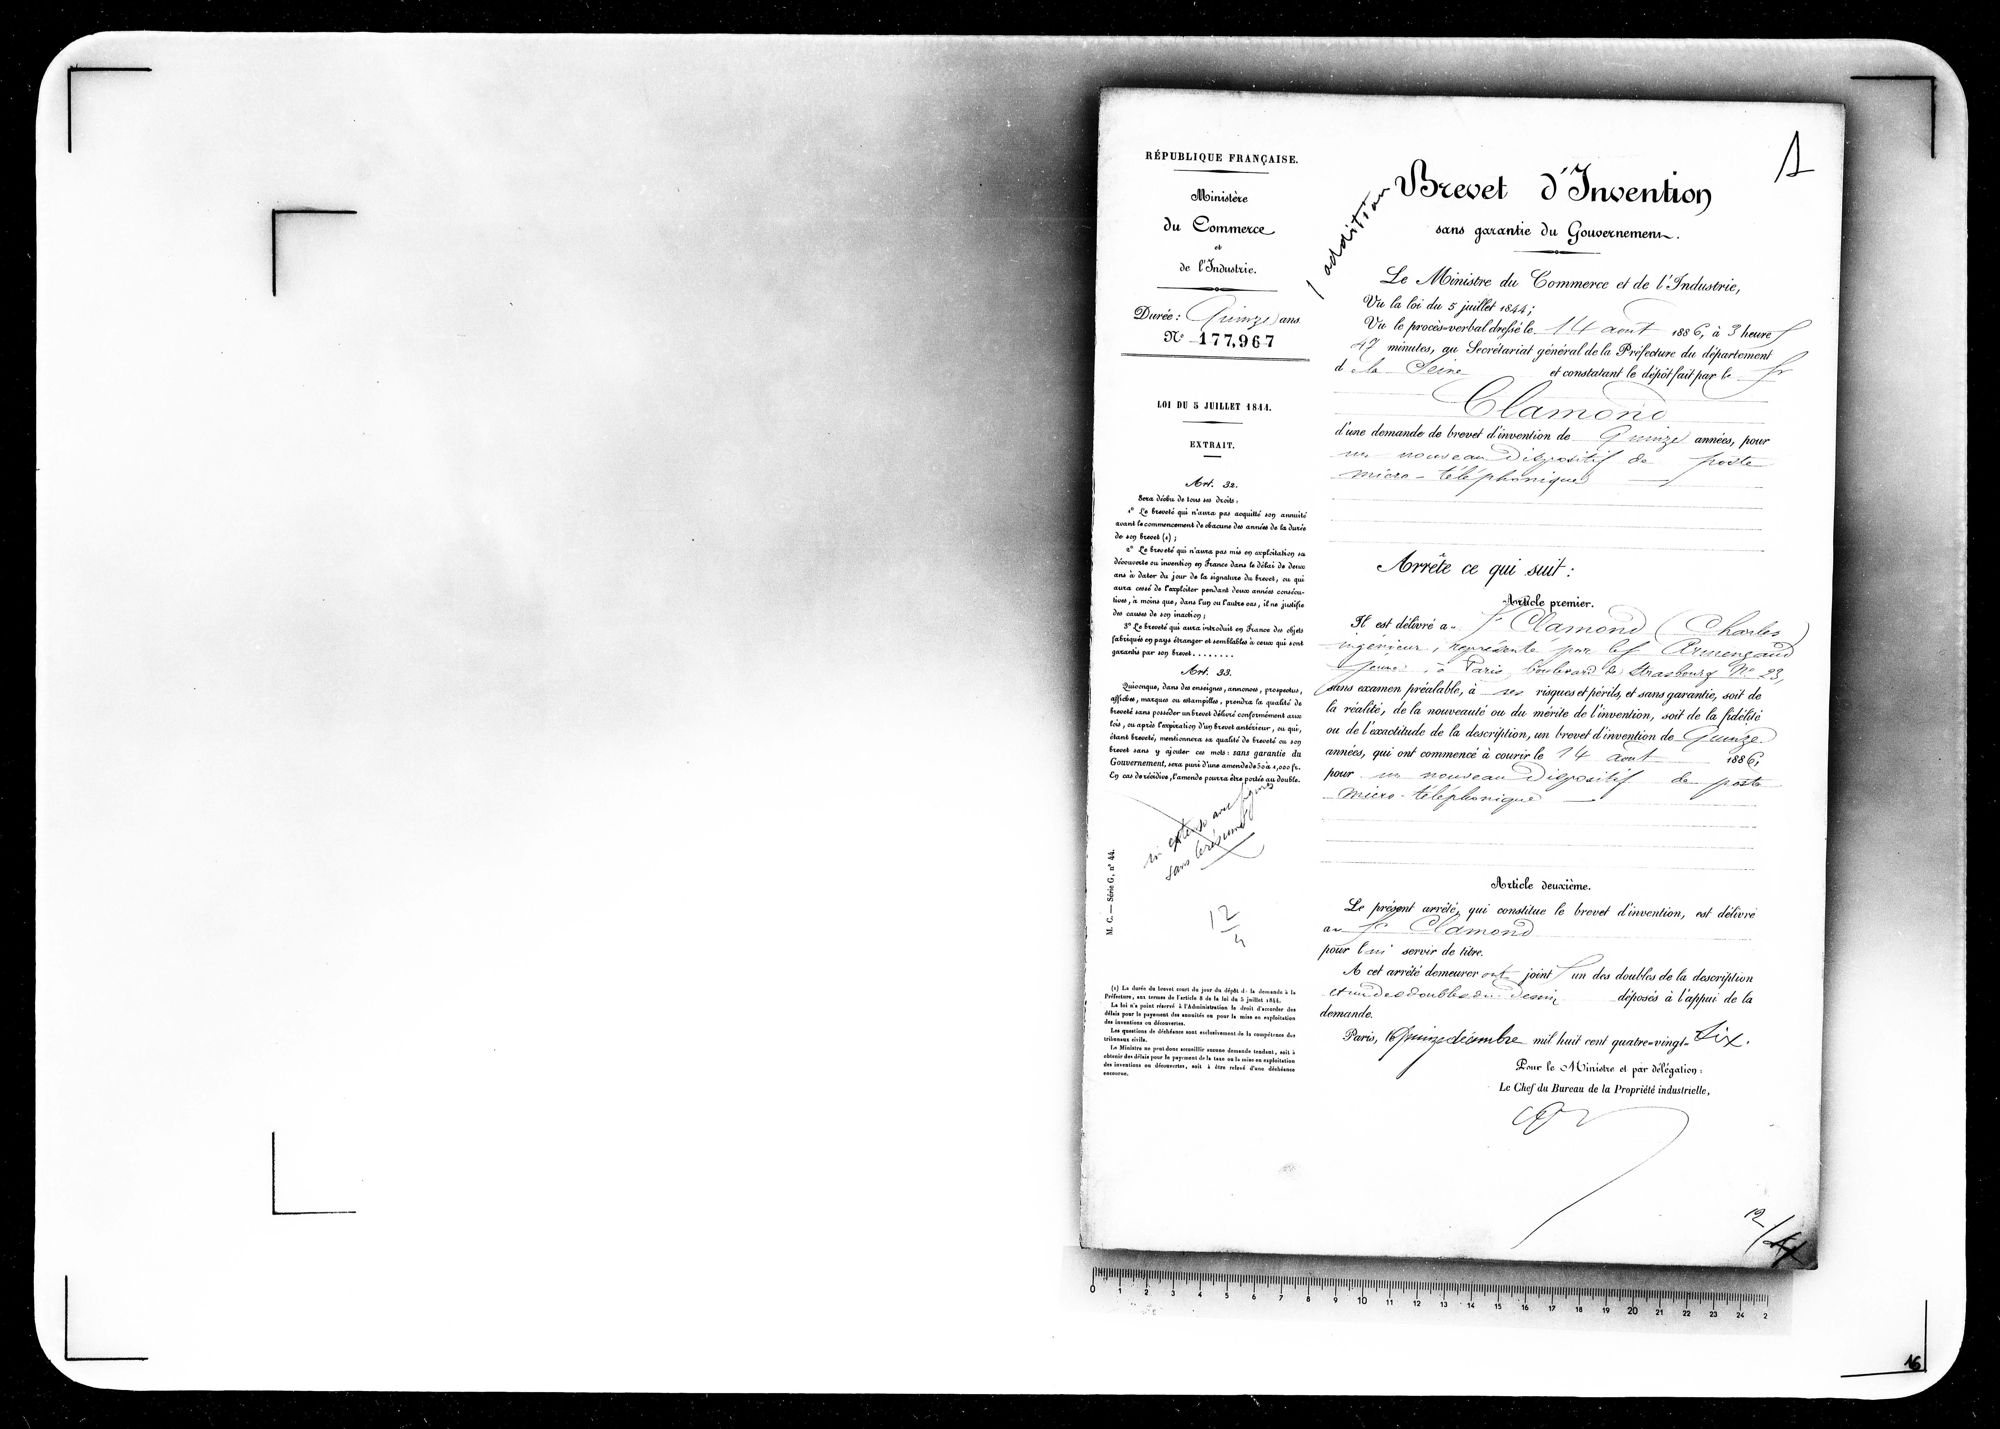 RÉPUBLIQUE FRANÇAISE.
Ministère
du Commerce
et
de l'Industrie.
Durée : Quinze ans.
N° 177,967
LOI DU 5 JUILLET 1844.
EXTRAIT.
Art. 32.
Sera déchu de tous ses droits :
1° Le breveté qui n'aura pas acquitté son annuité
avant le commencement de chacune des années de la durée
de son brevet (1) ;
2° Le breveté qui n'aura pas mis en exploitation sa
découverte ou invention en France dans le délai de deux
ans à dater du jour de la signature du brevet, ou qui
aura cessé de l'exploiter pendant deux années consécu-
tives, à moins que, dans l'un ou l'autre cas, il ne justifie
des causes de son inaction ;
3° Le breveté qui aura introduit en France des objets
fabriqués en pays étranger et semblables à ceux qui sont
garantis par son brevet........
Art. 33.
Quiconque, dans des enseignes, annonces, prospectus,
affiches, marques ou estampilles, prendra la qualité de
breveté sans posséder un brevet délivré conformément aux
lois, ou après l'expiration d'un brevet antérieur, ou qui,
étant breveté, mentionnera sa qualité de breveté ou son
brevet sans y ajouter ces mots : sans garantie du
Gouvernement, sera puni d'une amende de 50 à 1,000 fr.
En cas de récidive, l'amende pourra être portée au double.
in extenso avec figures
sans le résumé
12
4
M. C. — Série G, n° 44.
(1) La durée du brevet court du jour du dépôt de la demande à la
Préfecture, aux termes de l'article 8 de la loi du 5 juillet 1844.
La loi n'a point réservé à l'Administration le droit d'accorder des
délais pour le payement des annuités ou pour la mise en exploitation
des inventions ou découvertes.
Les questions de déchéance sont exclusivement de la compétence des
tribunaux civils.
Le Ministre ne peut donc accueillir aucune demande tendant, soit à
obtenir des délais pour le payement de la taxe ou la mise en exploitation
des inventions ou découvertes, soit à être relevé d'une déchéance
encourue.
1 addition
1
Brevet d'Invention
sans garantie du Gouvernement.
Le Ministre du Commerce et de l'Industrie,
Vu la loi du 5 juillet 1844 ;
Vu le procès-verbal dressé le 14 août 1886, à 3 heures
47 minutes, au Secrétariat général de la Préfecture du département
de la Seine et constatant le dépôt fait par le Sr
Clamond
d'une demande de brevet d'invention de Quinze années, pour
un nouveau dispositif de poste
micro-téléphonique
Arrête ce qui suit :
Article premier.
Il est délivré au Sr Clamond (Charles)
ingénieur, représenté par le Sr Armengaud
jeune, à Paris, boulevard de Strasbourg N° 23,
sans examen préalable, à ses risques et périls, et sans garantie, soit de
la réalité, de la nouveauté ou du mérite de l'invention, soit de la fidélité
ou de l'exactitude de la description, un brevet d'invention de Quinze
années, qui ont commencé à courir le 14 août 1886,
pour un nouveau dispositif de poste
micro-téléphonique
Article deuxième.
Le présent arrêté, qui constitue le brevet d'invention, est délivré
au Sr Clamond
pour lui servir de titre.
A cet arrêté demeureront joints un des doubles de la description
et un des doubles du dessin déposés à l'appui de la
demande.
Paris, le quinze décembre mil huit cent quatre-vingt-six.
Pour le Ministre et par délégation :
Le Chef du Bureau de la Propriété industrielle,
12
0 1 2 3 4 5 6 7 8 9 10 11 12 13 14 15 16 17 18 19 20 21 22 23 24 2
16